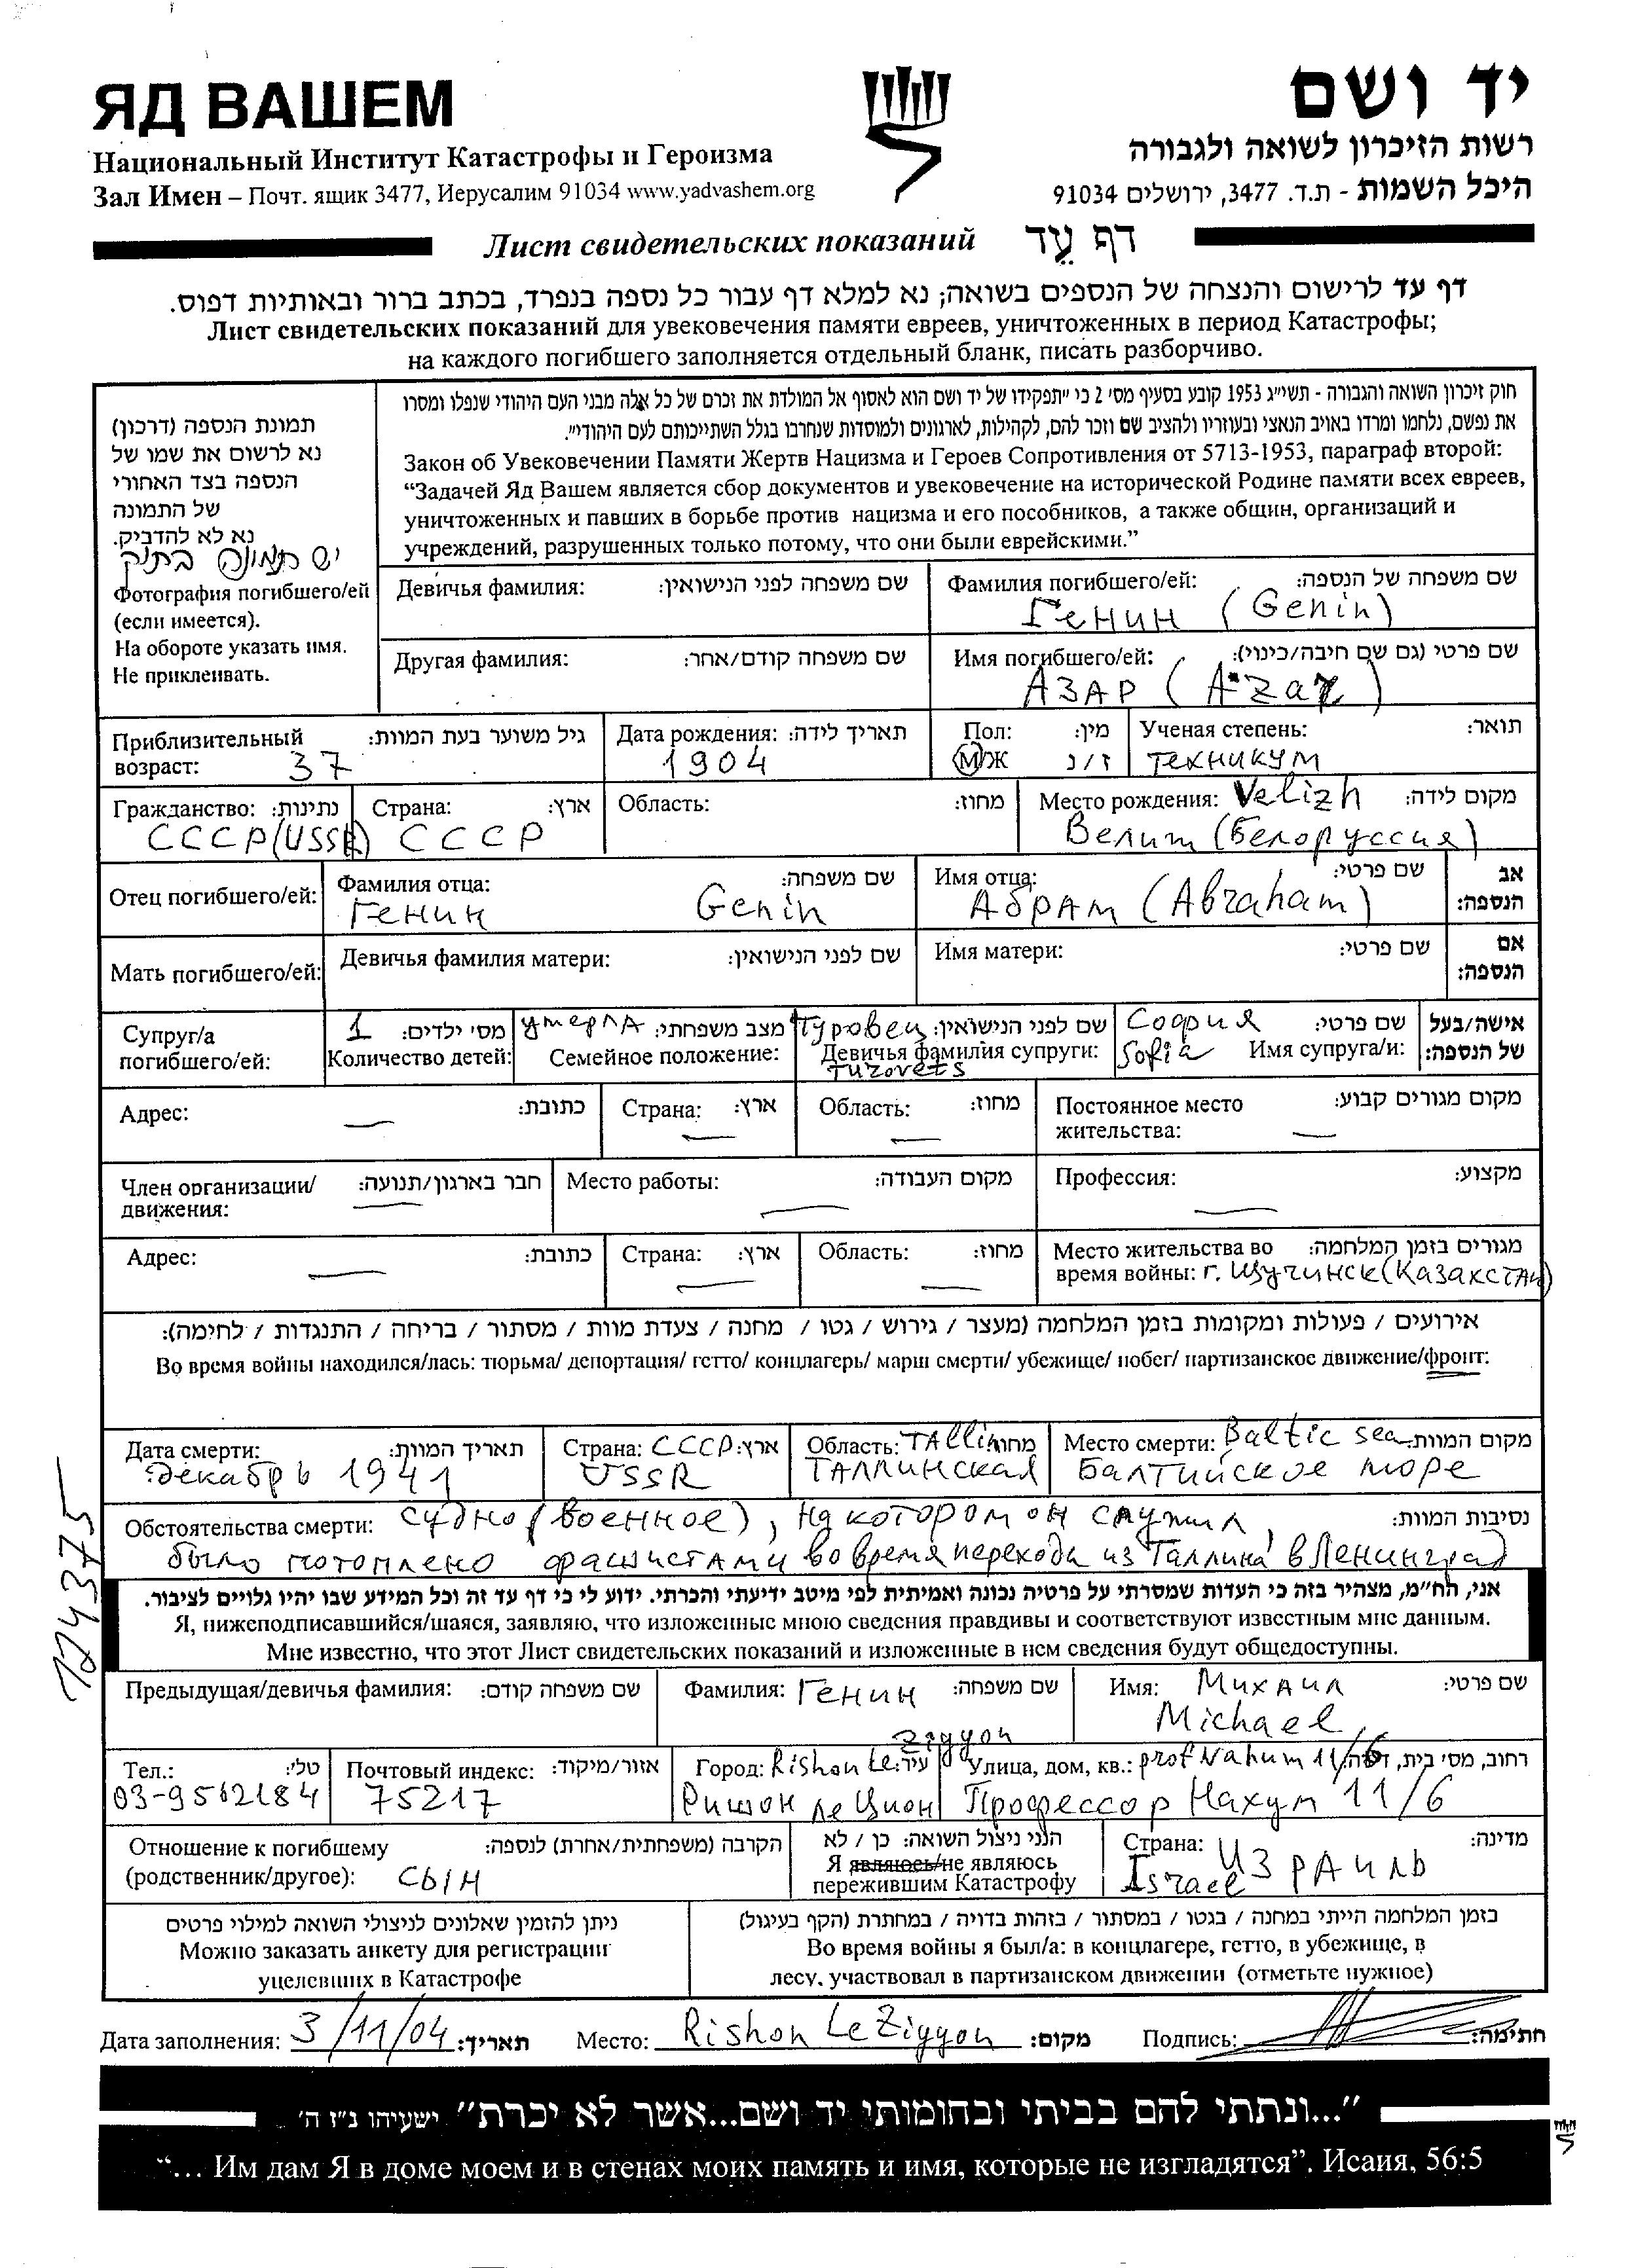 ЯД ВАШЕМ
Национальный Институт Катастрофы и Героизма
Зал Имен – Почт. ящик 3477, Иерусалим 91034 www.yadvashem.org
יד ושם
רשות הזיכרון לשואה ולגבורה
היכל השמות - ת.ד. 3477, ירושלים 91034
Лист свидетельских показаний דף עֵד
דף עד לרישום והנצחה של הנספים בשואה; נא למלא דף עבור כל נספה בנפרד, בכתב ברור ובאותיות דפוס.
Лист свидетельских показаний для увековечения памяти евреев, уничтоженных в период Катастрофы;
на каждого погибшего заполняется отдельный бланк, писать разборчиво.
תמונת הנספה (דרכון)
נא לרשום את שמו של
הנספה בצד האחורי
של התמונה
נא לא להדביק.
יש תמונה בתיק
Фотография погибшего/ей
(если имеется).
На обороте указать имя.
Не приклеивать.
חוק זיכרון השואה והגבורה - תשי״ג 1953 קובע בסעיף מס׳ 2 כי ״תפקידו של יד ושם הוא לאסוף אל המולדת את זכרם של כל אלה מבני העם היהודי שנפלו ומסרו
את נפשם, נלחמו ומרדו באויב הנאצי ובעוזריו ולהציב שם וזכר להם, לקהילות, לארגונים ולמוסדות שנחרבו בגלל השתייכותם לעם היהודי״.
Закон об Увековечении Памяти Жертв Нацизма и Героев Сопротивления от 5713-1953, параграф второй:
“Задачей Яд Вашем является сбор документов и увековечение на исторической Родине памяти всех евреев,
уничтоженных и павших в борьбе против нацизма и его пособников, а также общин, организаций и
учреждений, разрушенных только потому, что они были еврейскими.”
Девичья фамилия: שם משפחה לפני הנישואין:
Фамилия погибшего/ей: שם משפחה של הנספה:
Генин (Genin)
Другая фамилия: שם משפחה קודם/אחר:
Имя погибшего/ей: שם פרטי (גם שם חיבה/כינוי):
АЗАР (Azar)
Приблизительный возраст: גיל משוער בעת המוות:
37
Дата рождения: תאריך לידה:
1904
Пол: מין:
М/Ж ז/נ
Ученая степень: תואר:
техникум
Гражданство: נתינות:
СССР (USSR)
Страна: ארץ:
СССР
Область: מחוז:
Место рождения: Velizh מקום לידה:
Велиж (Белоруссия)
Отец погибшего/ей:
Фамилия отца: שם משפחה:
Генин Genin
Имя отца: שם פרטי:
Абрам (Abraham)
אב
הנספה:
Мать погибшего/ей:
Девичья фамилия матери: שם לפני הנישואין:
Имя матери: שם פרטי:
אם
הנספה:
Супруг/а
погибшего/ей:
1 מס׳ ילדים:
Количество детей:
умерла מצב משפחתי:
Семейное положение:
Туровец שם לפני הנישואין:
Девичья фамилия супруги:
Turovets
София שם פרטי:
Sofia Имя супруга/и:
אישה/בעל
של הנספה:
Адрес: כתובת:
Страна: ארץ:
Область: מחוז:
Постоянное место жительства: מקום מגורים קבוע:
Член организации/ движения: חבר בארגון/תנועה:
Место работы: מקום העבודה:
Профессия: מקצוע:
Адрес: כתובת:
Страна: ארץ:
Область: מחוז:
Место жительства во מגורים בזמן המלחמה:
время войны: г. Щучинск (Казахстан)
אירועים / פעולות ומקומות בזמן המלחמה (מעצר / גירוש / גטו / מחנה / צעדת מוות / מסתור / בריחה / התנגדות / לחימה):
Во время войны находился/лась: тюрьма/ депортация/ гетто/ концлагерь/ марш смерти/ убежище/ побег/ партизанское движение/фронт:
Дата смерти: תאריך המוות:
декабрь 1941
Страна: СССР ארץ:
USSR
Область: TAllin מחוז:
ТАЛЛИНСКАЯ
Место смерти: Baltic sea מקום המוות:
Балтийское море
Обстоятельства смерти: судно (военное), на котором он служил, נסיבות המוות:
было потоплено фашистами во время перехода из Таллина в Ленинград
אני, הח״מ, מצהיר בזה כי העדות שמסרתי על פרטיה נכונה ואמיתית לפי מיטב ידיעתי והכרתי. ידוע לי כי דף עד זה וכל המידע שבו יהיו גלויים לציבור.
Я, нижеподписавшийся/шаяся, заявляю, что изложенные мною сведения правдивы и соответствуют известным мне данным.
Мне известно, что этот Лист свидетельских показаний и изложенные в нем сведения будут общедоступны.
Предыдущая/девичья фамилия: שם משפחה קודם:
Фамилия: Генин שם משפחה:
Имя: Михаил שם פרטי:
Michael
Тел.: טל׳:
03-9562184
Почтовый индекс: אזור/מיקוד:
75217
Город: Rishon Le Ziyyon עיר:
Ришон ле Цион
Улица, дом, кв.: prof Nahum 11/6 רחוב, מס׳ בית, דירה:
Профессор Нахум 11/6
Отношение к погибшему הקרבה (משפחתית/אחרת) לנספה:
(родственник/другое): сын
הנני ניצול השואה: כן / לא
Я являюсь/не являюсь
пережившим Катастрофу
Страна: ИЗРАИЛЬ מדינה:
Israel
ניתן להזמין שאלונים לניצולי השואה למילוי פרטים
Можно заказать анкету для регистрации
уцелевших в Катастрофе
בזמן המלחמה הייתי במחנה / בגטו / במסתור / בזהות בדויה / במחתרת (הקף בעיגול)
Во время войны я был/а: в концлагере, гетто, в убежище, в
лесу, участвовал в партизанском движении (отметьте нужное)
Дата заполнения: 3/11/04 תאריך: Место: Rishon LeZiyyon מקום: Подпись: חתימה:
״...ונתתי להם בביתי ובחומותי יד ושם...אשר לא יכרת״ ישעיהו נ״ו ה׳
“… Им дам Я в доме моем и в стенах моих память и имя, которые не изгладятся”. Исаия, 56:5
124375